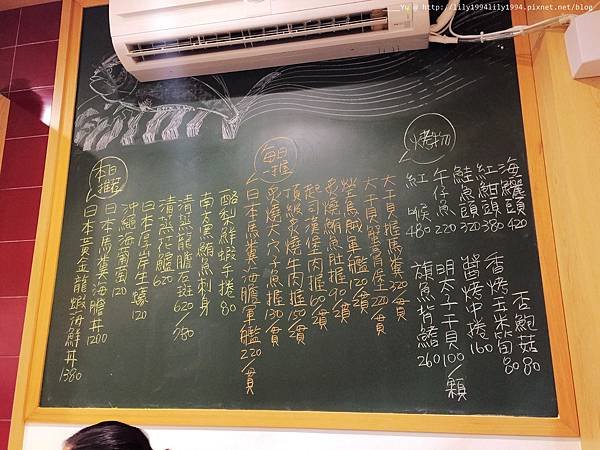 Yu @ http://lily1994lily1994.pixnet.net/blog
烤物
海鱺頭 420
紅魽頭 380
鮭魚頭 320
午仔魚 220
紅喉 480
杏鮑菇 80
香烤玉米筍 80
醬烤中捲 160
明太子干貝 100/顆
旗魚背鰭 260
每日握
大干貝握馬糞 320/貫
大干貝蟹膏 220/貫
螢烏賊軍艦 120/貫
炙燒鮪魚肚握 90/貫
起司漢堡肉握 60/貫
頂級炙燒牛肉握 150/貫
炙燒大穴子魚握 130/貫
日本馬糞海膽軍艦 220/貫
本日推薦
酪梨鮮蝦手捲 80
南方黑鮪魚刺身
清蒸龍膽石斑 620/780
清蒸 620
日本厚岸生蠔 120
沖繩海葡萄 120
日本馬糞海膽丼 1200
日本黃金龍蝦海鮮丼 1380